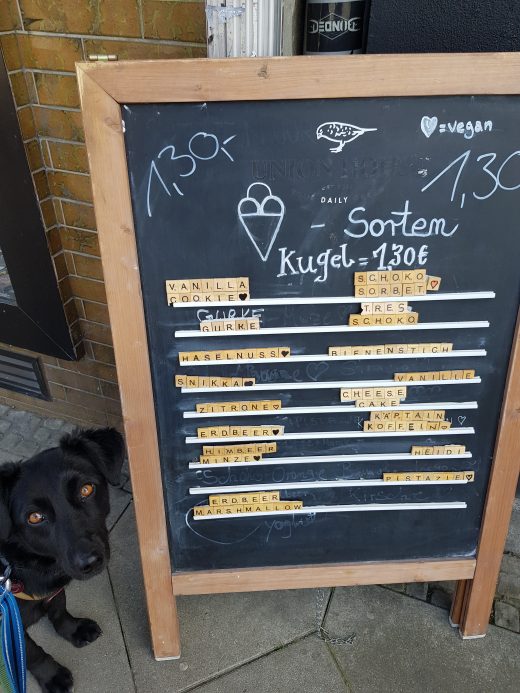 DEDNOG
♥=vegan
1,30,-
1,30
UNION
DAILY
- Sorten
Kugel = 1,30€
VANILLA COOKIE♥
SCHOKO SORBET♥
GURKE
GURKE
TRES SCHOKO
HASELNUSS♥
BIENENSTICH
SNIKKA♥
VANILLE
ZITRONE♥
CHEESE CAKE
ERDBEER♥
KÄPTAIN KOFFEIN♥
HIMBEER MINZE♥
HEIDI
PISTAZIE♥
ERDBEER MARSHMALLOW
yoghurt